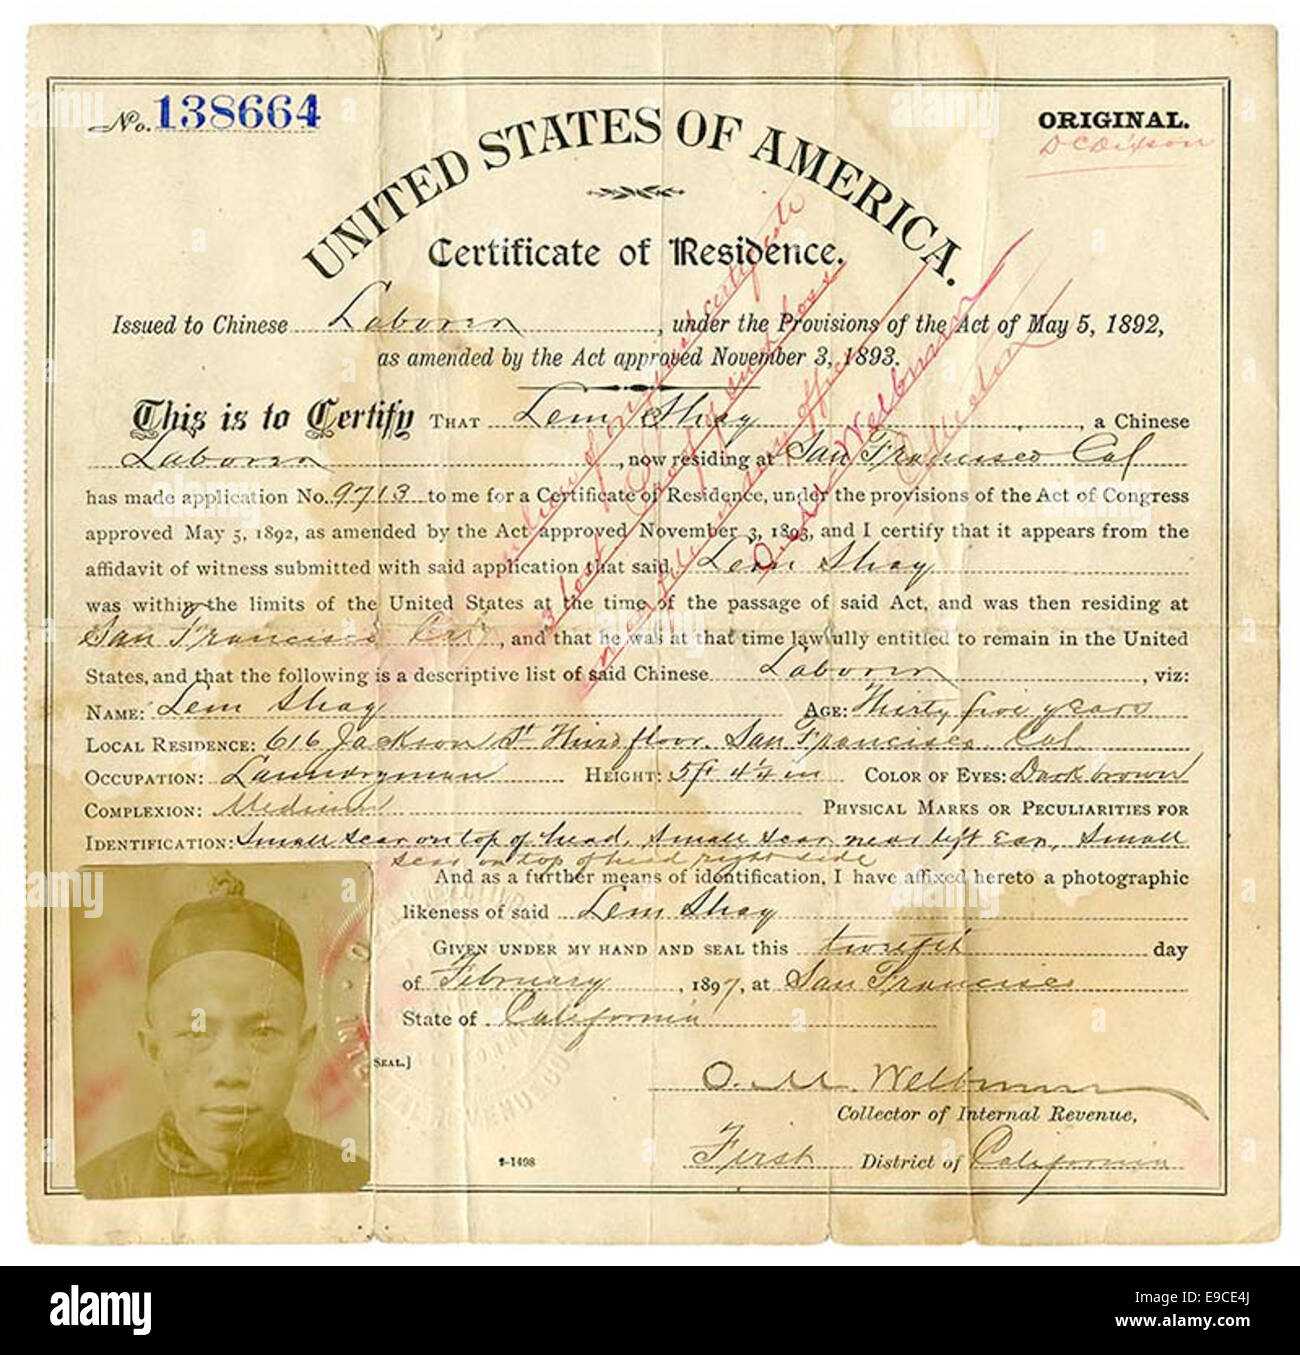 No. 138664
ORIGINAL.
D C Dixson
UNITED STATES OF AMERICA.
Certificate of Residence.
Issued to Chinese Laborer, under the Provisions of the Act of May 5, 1892,
as amended by the Act approved November 3, 1893.
This is to Certify THAT Lem Shay, a Chinese
Laborer, now residing at San Francisco Cal
has made application No. 9713 to me for a Certificate of Residence, under the provisions of the Act of Congress
approved May 5, 1892, as amended by the Act approved November 3, 1893, and I certify that it appears from the
affidavit of witness submitted with said application that said Lem Shay
was within the limits of the United States at the time of the passage of said Act, and was then residing at
San Francisco Cal, and that he was at that time lawfully entitled to remain in the United
States, and that the following is a descriptive list of said Chinese Laborer, viz:
NAME: Lem Shay AGE: Thirty five years
LOCAL RESIDENCE: 616 Jackson St Third floor. San Francisco Cal.
OCCUPATION: Laundryman HEIGHT: 5 ft 4 1/4 in COLOR OF EYES: Dark brown
COMPLEXION: Medium PHYSICAL MARKS OR PECULIARITIES FOR
IDENTIFICATION: Small scar on top of head, small scar near left ear, small
scar on top of head right side
And as a further means of identification, I have affixed hereto a photographic
likeness of said Lem Shay
GIVEN UNDER MY HAND AND SEAL this twelfth day
of February, 1897, at San Francisco
State of California
SEAL.]
O. M. Welburn
Collector of Internal Revenue,
First District of California
2-1498
in lieu of original certificate
lost
O. M. Welburn
Collector
alamy
Image ID: E9CE4J
www.alamy.com